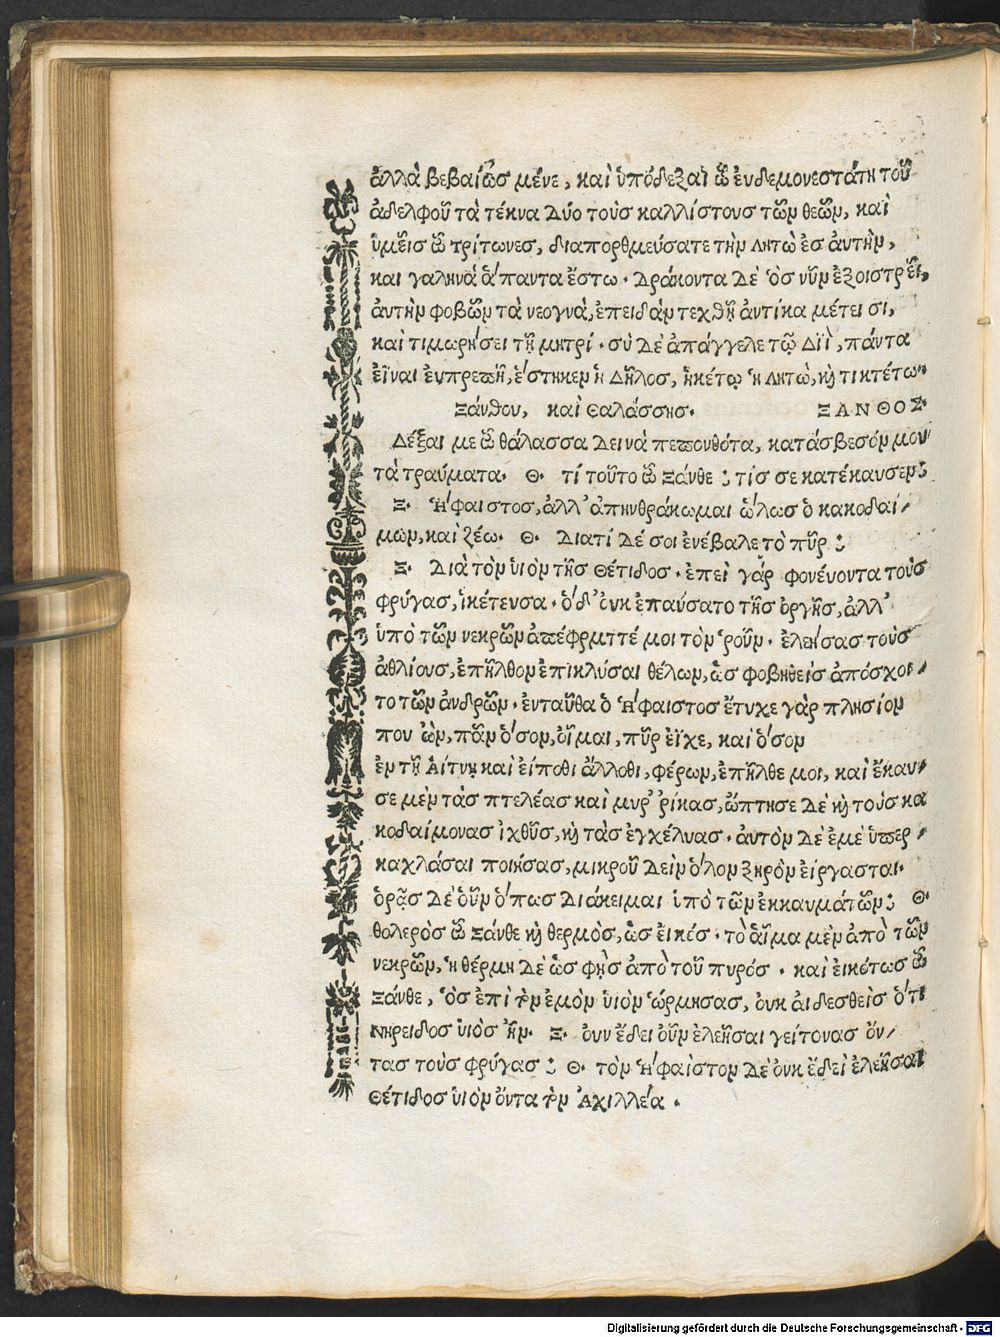 ἀλλὰ βεβαίως μένε, καὶ ὑπόδεξαι ὦ ἐυδεμονεστάτη τοῦ
ἀδελφοῦ τὰ τέκνα δύο τοὺς καλλίστους τῶν θεῶν, καὶ
ὑμεῖς ὦ τρίτωνες, διαπορθμεύσατε τὴν λητὼ ἐς ἀυτὴν,
και γαληνὰ ἅπαντα ἔστω. δράκοντα δὲ ὃς νῦν ἐξοιστρεῖ,
ἀυτὴν φοβῶν τὰ νεογνὰ, ἐπειδὰν τεχθῇ ἀντίκα μέτεισι,
καὶ τιμωρήσει τῇ μητρί. σὺ δὲ ἀπάγγελε τῷ Διὶ, πάντα
εἶναι ἐυπρεπῆ, ἕστηκεν ἡ Δῆλος, ἡκέτω ἡ λητὼ, καὶ τικτέτω.
Ξάνθου, καὶ θαλάσσης. ΞΑΝΘΟΣ.
Δέξαι με ὦ θάλασσα δεινὰ πεπονθότα, κατάσβεσόν μου
τὰ τραύματα. Θ. τί τοῦτο ὦ Ξάνθε; τίς σε κατέκαυσεν;
Ξ. Ἥφαιστος, ἀλλ' ἀπηνθράκωμαι ὅλως ὁ κακοδαί-
μων, καὶ ζέω. Θ. Διατί δέ σοι ἐνέβαλε τὸ πῦρ;
Ξ. Διὰ τὸν υἱὸν τῆς Θέτιδος. ἐπεὶ γὰρ φονέυοντα τοὺς
φρύγας, ἱκέτευσα. ὁ δ' ὀυκ ἐπαύσατο τῆς ὀργῆς, ἀλλ'
ὑπὸ τῶν νεκρῶν ἀπέφρμττέ μοι τὸν ῥοῦν. ἐλεήσας τοὺς
ἀθλίους, ἐπῆλθον ἐπικλύσαι θέλων, ὡς φοβηθεὶς ἀπόσχοι-
το τῶν ἀνδρῶν. ἐνταῦθα ὁ Ἥφαιστος ἔτυχε γὰρ πλησίον
που ὢν, πᾶν ὅσον, ὄιμαι, πῦρ εἶχε, καὶ ὅσον
ἐν τῇ Αἴτνῃ καὶ εἴποθι ἄλλοθι, φέρων, ἐπῆλθε μοι, καὶ ἔκαυ-
σε μὲν τὰς πτελέας καὶ μυρρίκας, ὤπτησε δὲ καὶ τοὺς κα
κοδαίμονας ἰχθῦς, καὶ τὰς ἐγχέλυας. ἀυτὸν δὲ ἐμὲ ὑπερ-
καχλάσαι ποιήσας, μικροῦ δεῖν ὅλον ξηρὸν εἴργασται.
ὁρᾷς δὲ ὀῦν ὅπως διάκειμαι ὑπὸ τῶν ἐκκαυμάτων; Θ.
θολερὸς ὦ Ξάνθε καὶ θερμὸς, ὡς ἐικός. τὸ ἇιμα μὲν ἀπὸ τῶν
νεκρῶν, ἡ θέρμη δὲ ὡς φῂς ἀπὸ τοῦ πυρός. καὶ ἐικότως ὦ
Ξάνθε, ὃς ἐπὶ τὸν ἐμὸν υἱὸν ὥρμησας, ὀυκ ἀιδεσθεὶς ὅτι
Νηρεϊδος υἱὸς ἦν. Ξ. ὀυν ἔδει ὀῦν ἐλεῆσαι γείτονας ὄν-
τας τοὺς φρύγας; Θ. τὸν Ἥφαιστον δὲ ὀυκ ἔδει ἐλεῆσαι
Θέτιδος υἱὸν ὄντα τὸν Ἀχιλλέα.
Digitalisierung gefördert durch die Deutsche Forschungsgemeinschaft - DFG